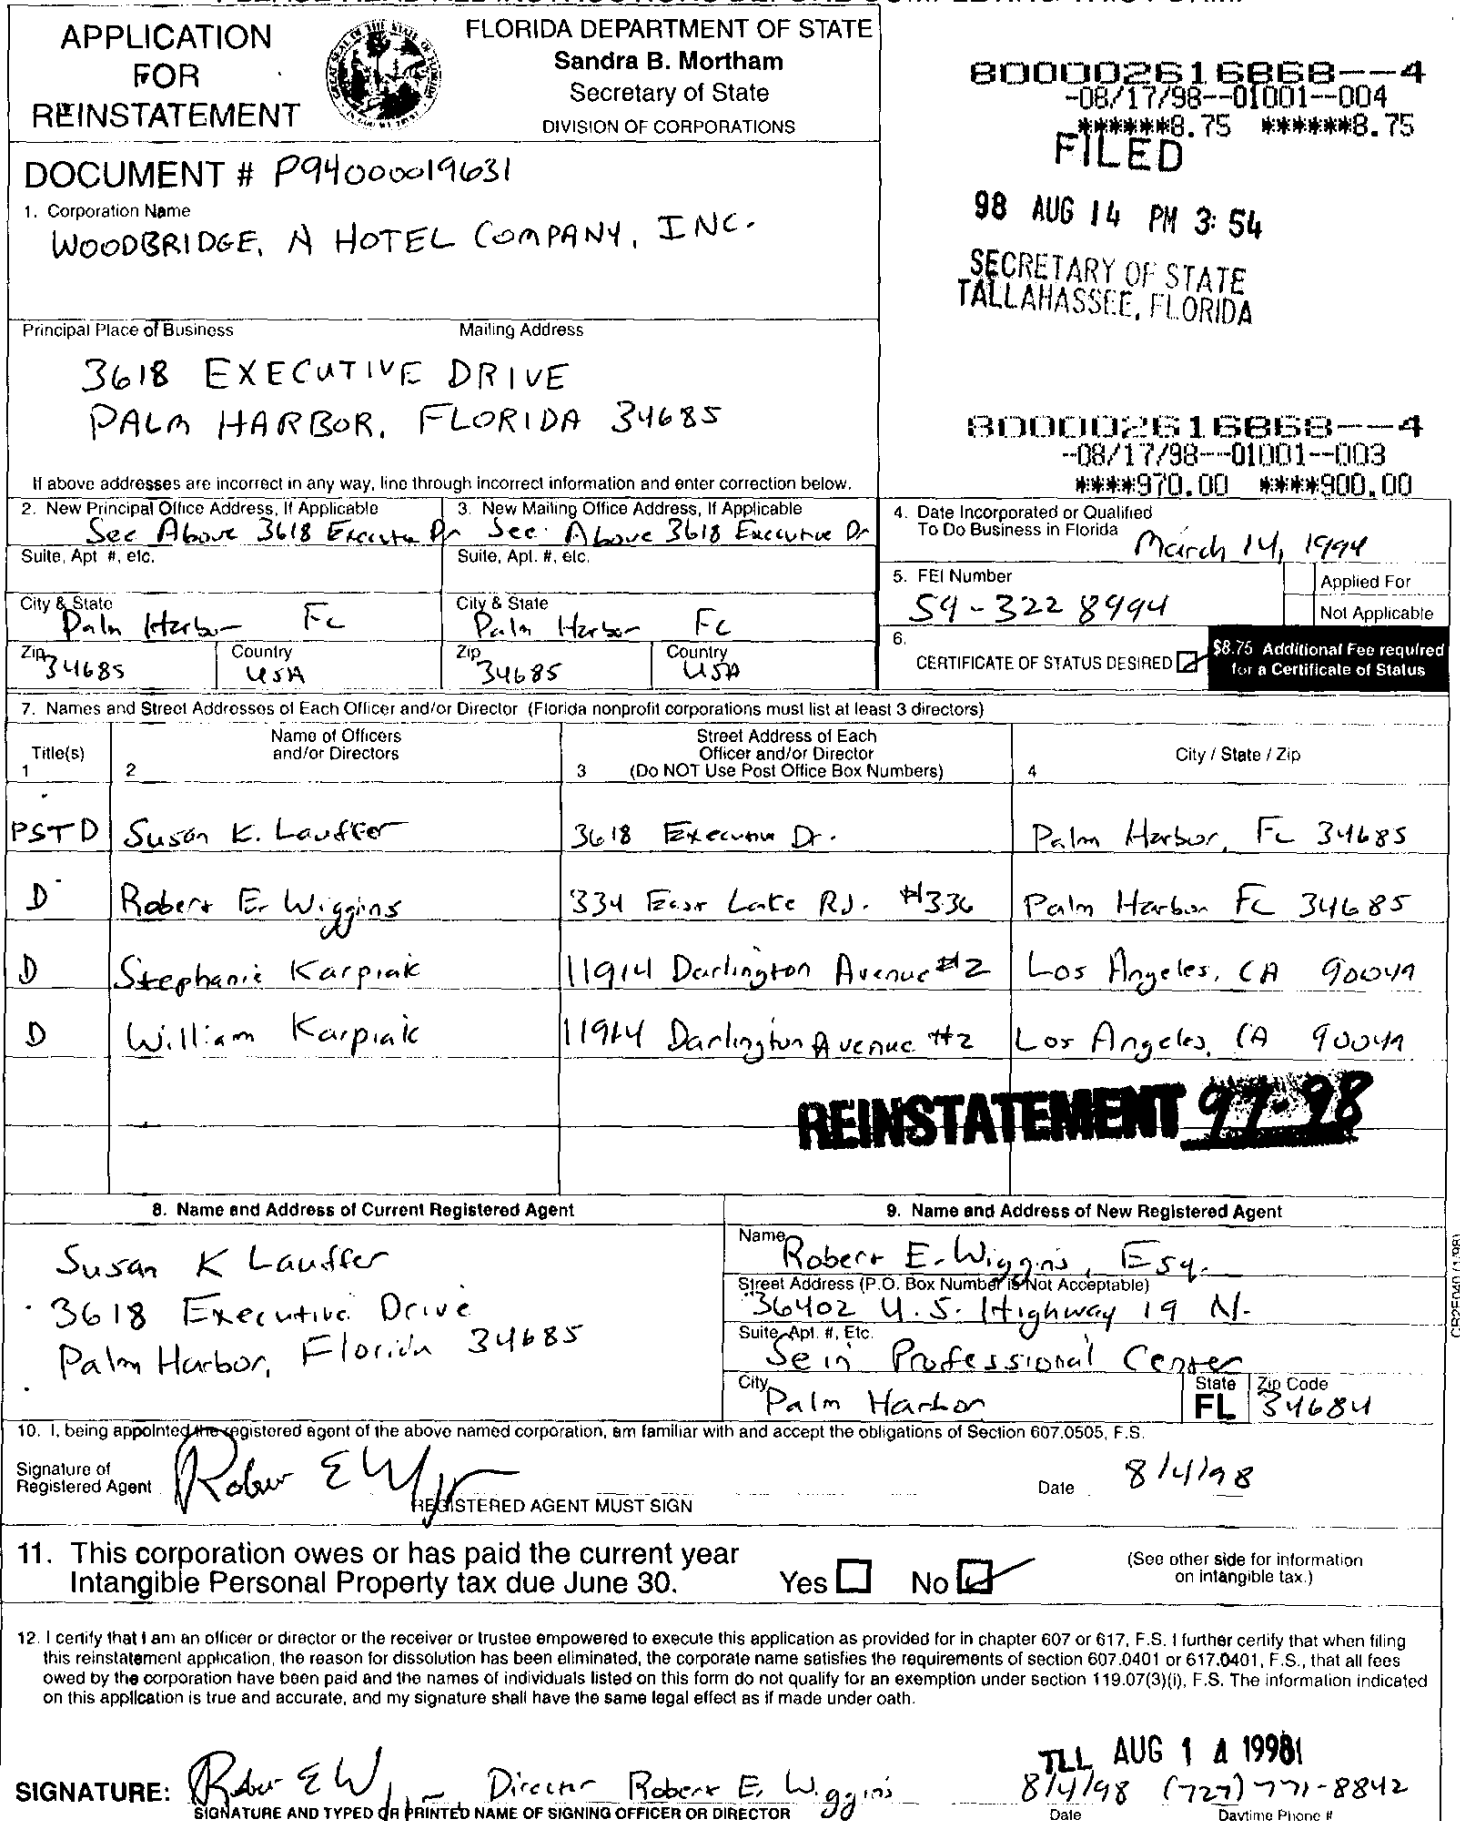 APPLICATION
FOR
REINSTATEMENT
FLORIDA DEPARTMENT OF STATE
Sandra B. Mortham
Secretary of State
DIVISION OF CORPORATIONS
800002616868--4
-08/17/98--01001--004
******8.75 ******8.75
FILED
98 AUG 14 PM 3:54
SECRETARY OF STATE
TALLAHASSEE, FLORIDA
DOCUMENT # P94000019631
1. Corporation Name
WOODBRIDGE, A HOTEL COMPANY, INC.
Principal Place of Business Mailing Address
3618 EXECUTIVE DRIVE
PALM HARBOR, FLORIDA 34685
800002616868--4
-08/17/98--01001--003
****970.00 ****900.00
If above addresses are incorrect in any way, line through incorrect information and enter correction below.
2. New Principal Office Address, If Applicable
See Above 3618 Executive Dr
Suite, Apt #, etc.
City & State
Palm Harbor FL
Zip 34685 Country USA
3. New Mailing Office Address, If Applicable
See Above 3618 Executive Dr
Suite, Apt. #, etc.
City & State
Palm Harbor FL
Zip 34685 Country USA
4. Date Incorporated or Qualified
To Do Business in Florida March 14, 1994
5. FEI Number
59-3228994
Applied For
Not Applicable
6.
CERTIFICATE OF STATUS DESIRED
$8.75 Additional Fee required
for a Certificate of Status
7. Names and Street Addresses of Each Officer and/or Director (Florida nonprofit corporations must list at least 3 directors)
Title(s)
1
Name of Officers
and/or Directors
2
Street Address of Each
Officer and/or Director
3 (Do NOT Use Post Office Box Numbers)
City / State / Zip
4
PSTD Susan K. Lauffer 3618 Executive Dr. Palm Harbor, FL 34685
D Robert E. Wiggins 334 East Lake Rd. #336 Palm Harbor FL 34685
D Stephanie Karpiak 11914 Darlington Avenue #2 Los Angeles, CA 90049
D William Karpiak 11914 Darlington Avenue #2 Los Angeles, CA 90049
REINSTATEMENT 97-98
8. Name and Address of Current Registered Agent
Susan K Lauffer
3618 Executive Drive
Palm Harbor, Florida 34685
9. Name and Address of New Registered Agent
Name
Robert E. Wiggins, Esq.
Street Address (P.O. Box Number is Not Acceptable)
36402 U.S. Highway 19 N.
Suite, Apt. #, Etc.
Professional Center
City State Zip Code
Palm Harbor FL 34684
CR2E040 (1/98)
10. I, being appointed the registered agent of the above named corporation, am familiar with and accept the obligations of Section 607.0505, F.S.
Signature of
Registered Agent
REGISTERED AGENT MUST SIGN
Date 8/4/98
11. This corporation owes or has paid the current year
Intangible Personal Property tax due June 30. Yes No
(See other side for information
on intangible tax.)
12. I certify that I am an officer or director or the receiver or trustee empowered to execute this application as provided for in chapter 607 or 617, F.S. I further certify that when filing
this reinstatement application, the reason for dissolution has been eliminated, the corporate name satisfies the requirements of section 607.0401 or 617.0401, F.S., that all fees
owed by the corporation have been paid and the names of individuals listed on this form do not qualify for an exemption under section 119.07(3)(i), F.S. The information indicated
on this application is true and accurate, and my signature shall have the same legal effect as if made under oath.
TLL AUG 14 1998
SIGNATURE: Director Robert E. Wiggins 8/4/98 (727) 771-8842
SIGNATURE AND TYPED OR PRINTED NAME OF SIGNING OFFICER OR DIRECTOR Date Daytime Phone #